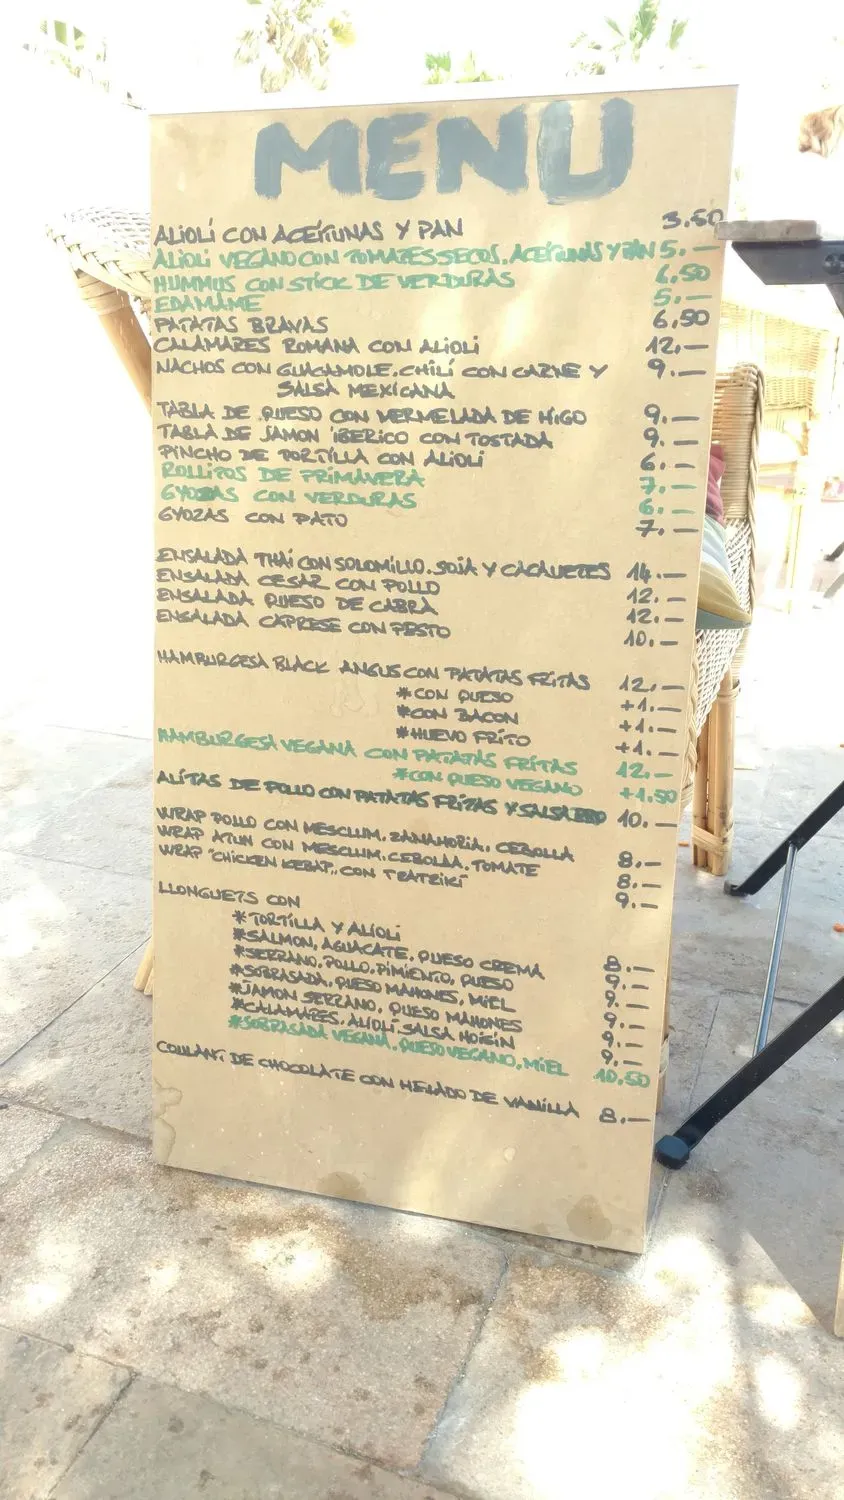 MENU
ALIOLI CON ACEITUNAS Y PAN 3.50
ALIOLI VEGANO CON TOMATES SECOS, ACEITUNAS Y PAN 5.—
HUMMUS CON STICK DE VERDURAS 6,50
EDAMAME 5.—
PATATAS BRAVAS 6,50
CALAMARES ROMANA CON ALIOLI 12.—
NACHOS CON GUACAMOLE, CHILÍ CON CARNE Y 9.—
SALSA MEXICANA
TABLA DE QUESO CON MERMELADA DE HIGO 9.—
TABLA DE JAMON IBERICO CON TOSTADA 9.—
PINCHO DE TORTILLA CON ALIOLI 6.—
ROLLITOS DE PRIMAVERA 7.—
GYOZAS CON VERDURAS 6.—
GYOZAS CON PATO 7.—
ENSALADA THAI CON SOLOMILLO, SOJA Y CACAUETES 14.—
ENSALADA CESAR CON POLLO 12.—
ENSALADA QUESO DE CABRA 12.—
ENSALADA CAPRESE CON PESTO 10.—
HAMBURGESA BLACK ANGUS CON PATATAS FRITAS 12.—
*CON QUESO +1.—
*CON BACON +1.—
*HUEVO FRITO +1.—
HAMBURGESA VEGANA CON PATATAS FRITAS 12.—
*CON QUESO VEGANO +1.50
ALITAS DE POLLO CON PATATAS FRITAS Y SALSA BBQ 10.—
WRAP POLLO CON MESCLUM, ZANAHORIA, CEBOLLA 8.—
WRAP ATUN CON MESCLUM, CEBOLLA, TOMATE 8.—
WRAP "CHICKEN KEBAP" CON TZATZIKI 9.—
LLONGUETS CON
*TORTILLA Y ALIOLI 8.—
*SALMON, AGUACATE, QUESO CREMA 9.—
*SERRANO, POLLO, PIMIENTO, QUESO 9.—
*SOBRASADA, QUESO MAHONES, MIEL 9.—
*JAMON SERRANO, QUESO MAHONES 9.—
*CALAMARES, ALIOLI, SALSA HOISIN 9.—
*SOBRASADA VEGANA, QUESO VEGANO, MIEL 10.50
COULANT DE CHOCOLATE CON HELADO DE VANILLA 8.—